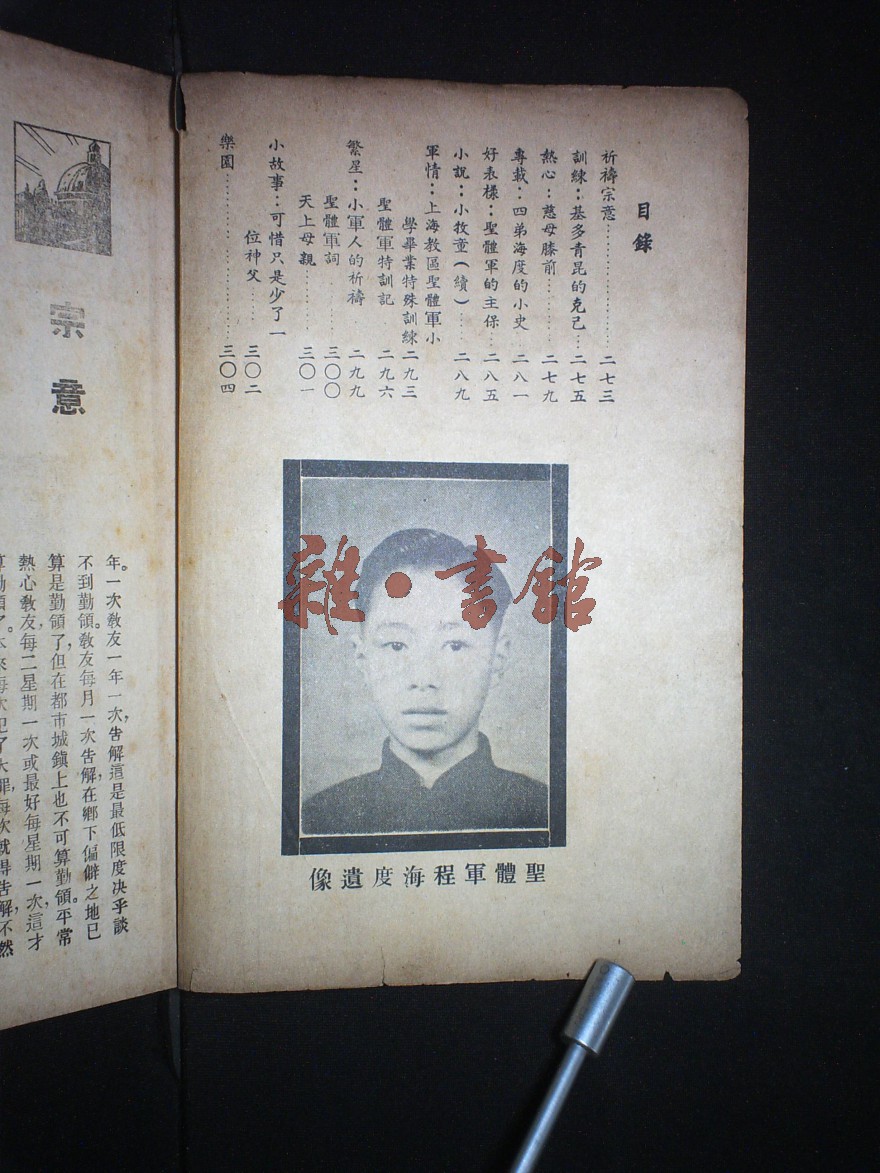 目錄
祈禱宗意……二七三
訓練：基多青昆的克己…二七五
熱心：慈母膝前……二七九
專載：四弟海度的小史…二八一
好表樣：聖體軍的主保…二八五
小說：小牧童（續）…二八九
軍情：上海教區聖體軍小
學畢業特殊訓練二九三
聖體軍特訓記…二九六
繁星：小軍人的祈禱二九九
聖體軍詞…三〇〇
天上母親…三〇一
小故事：可惜只是少了一
位神父…三〇二
樂園……三〇四
聖體軍程海度遺像
雜·書館
宗意
年。一次教友一年一次，告解這是最低限度决乎談
不到勤領。教友每月一次告解，在鄉下偏僻之地已
算是勤領了，但在都市城鎮上也不可算勤領。平常
熱心教友，每二星期一次或最好每星期一次，這才